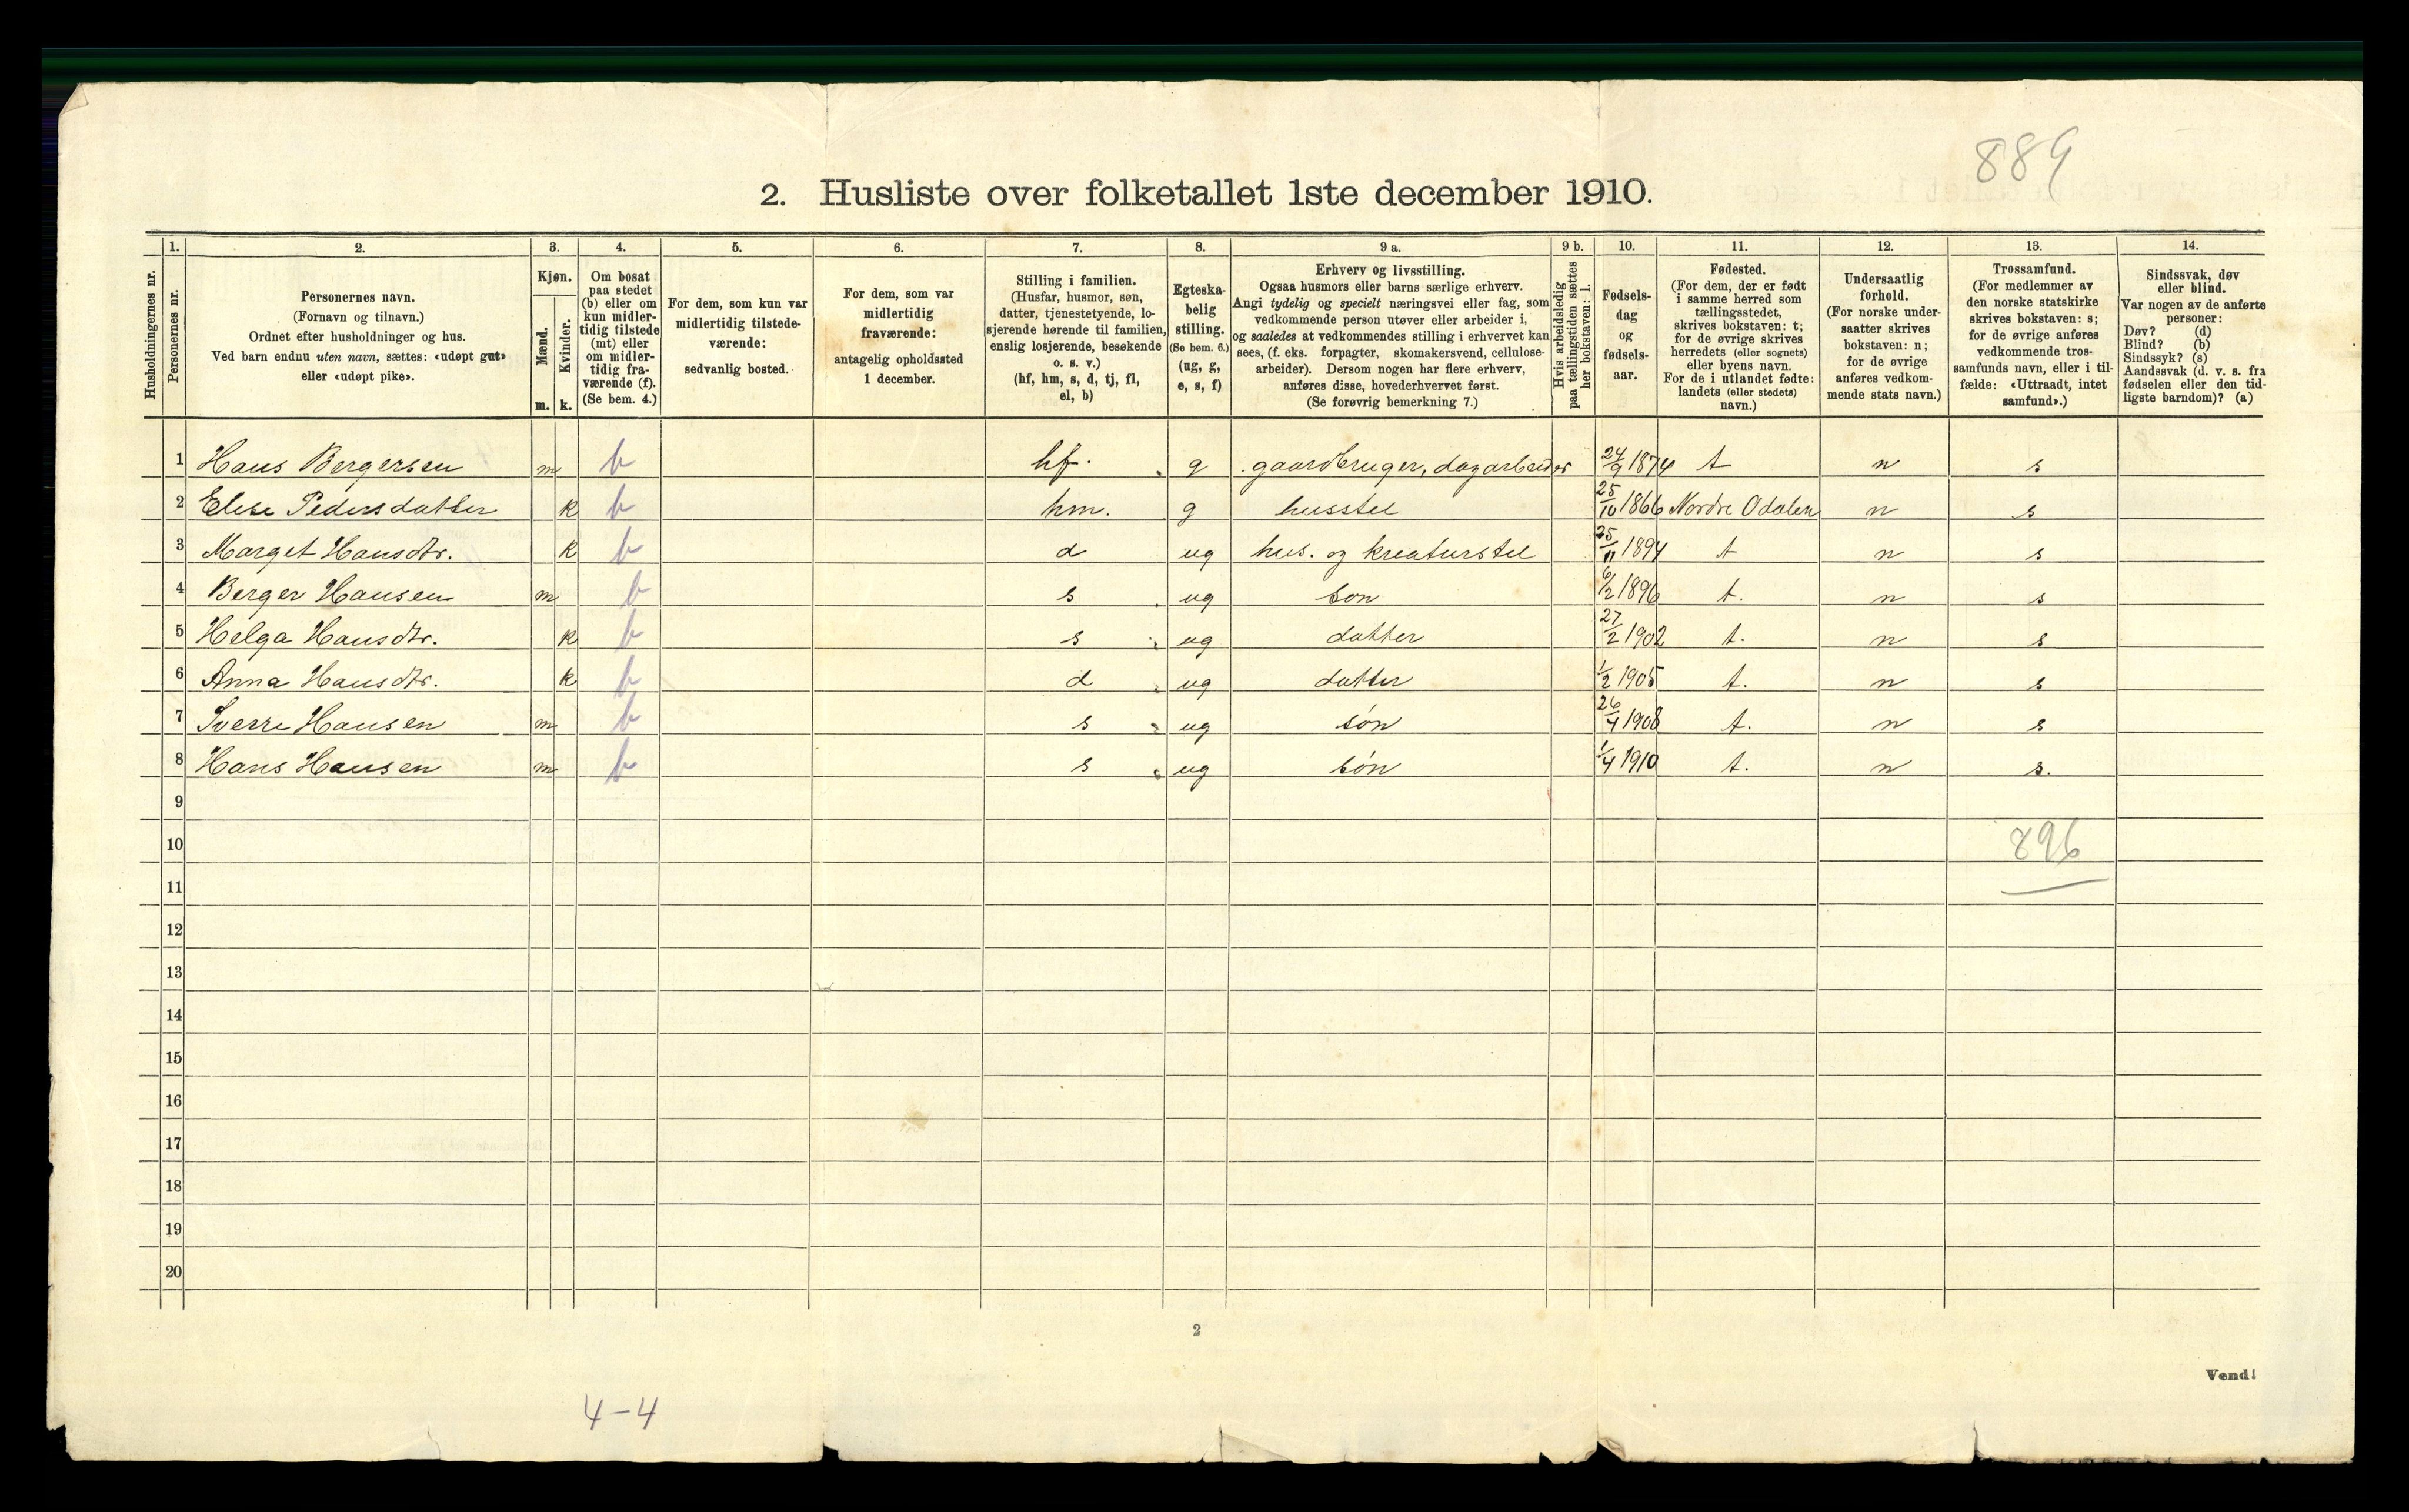 889
2. Husliste over folketallet 1ste december 1910.
Husholdningernes nr.
1.
Personernes nr.
2.
Personernes navn.
(Fornavn og tilnavn.)
Ordnet efter husholdninger og hus.
Ved barn endnu uten navn, sættes: «udøpt gut»
eller «udøpt pike».
3.
Kjøn.
Mænd.
m.
Kvinder.
k.
4.
Om bosat
paa stedet
(b) eller om
kun midler-
tidig tilstede
(mt) eller
om midler-
tidig fra-
værende (f).
(Se bem. 4.)
5.
For dem, som kun var
midlertidig tilstede-
værende:
sedvanlig bosted.
6.
For dem, som var
midlertidig
fraværende:
antagelig opholdssted
1 december.
7.
Stilling i familien.
(Husfar, husmor, søn,
datter, tjenestetyende, lo-
sjerende hørende til familien,
enslig losjerende, besøkende
o. s. v.)
(hf, hm, s, d, tj, fl,
el, b)
8.
Egteska-
belig
stilling.
(Se bem. 6.)
(ug, g,
e, s, f)
9 a.
Erhverv og livsstilling.
Ogsaa husmors eller barns særlige erhverv.
Angi tydelig og specielt næringsvei eller fag, som
vedkommende person utøver eller arbeider i,
og saaledes at vedkommendes stilling i erhvervet kan
sees, (f. eks. forpagter, skomakersvend, cellulose-
arbeider). Dersom nogen har flere erhverv,
anføres disse, hovederhvervet først.
(Se forøvrig bemerkning 7.)
9 b.
Hvis arbeidsledig
paa tællingstiden sættes
her bokstaven: l.
10.
Fødsels-
dag
og
fødsels-
aar.
11.
Fødested.
(For dem, der er født
i samme herred som
tællingsstedet,
skrives bokstaven: t;
for de øvrige skrives
herredets (eller sognets)
eller byens navn.
For de i utlandet fødte:
landets (eller stedets)
navn.)
12.
Undersaatlig
forhold.
(For norske under-
saatter skrives
bokstaven: n;
for de øvrige
anføres vedkom-
mende stats navn.)
13.
Trossamfund.
(For medlemmer av
den norske statskirke
skrives bokstaven: s;
for de øvrige anføres
vedkommende tros-
samfunds navn, eller i til-
fælde: «Uttraadt, intet
samfund».)
14.
Sindssvak, døv
eller blind.
Var nogen av de anførte
personer:
Døv? (d)
Blind? (b)
Sindssyk? (s)
Aandssvak (d. v. s. fra
fødselen eller den tid-
ligste barndom)? (a)
1 Hans Bergersen m b hf. g gaardbruger, dagarbeider 24/9 1874 t n s
2 Elise Pedersdatter k b hm. g husstel 25/10 1866 Nordre Odalen n s
3 Marget Hansdtr. k b d ug hus. og kreaturstel 25/11 1894 t n s
4 Berger Hansen m b s ug søn 6/2 1896 t. n s
5 Helga Hansdtr. k b s ug datter 27/2 1902 t. n s
6 Anna Hansdtr. k b d ug datter 1/2 1905 t. n s
7 Sverre Hansen m b s ug søn 26/4 1908 t. n s
8 Hans Hansen m b s ug søn 1/4 1910 t. n s.
9
10 896
11
12
13
14
15
16
17
18
19
20
2
Vend!
4-4